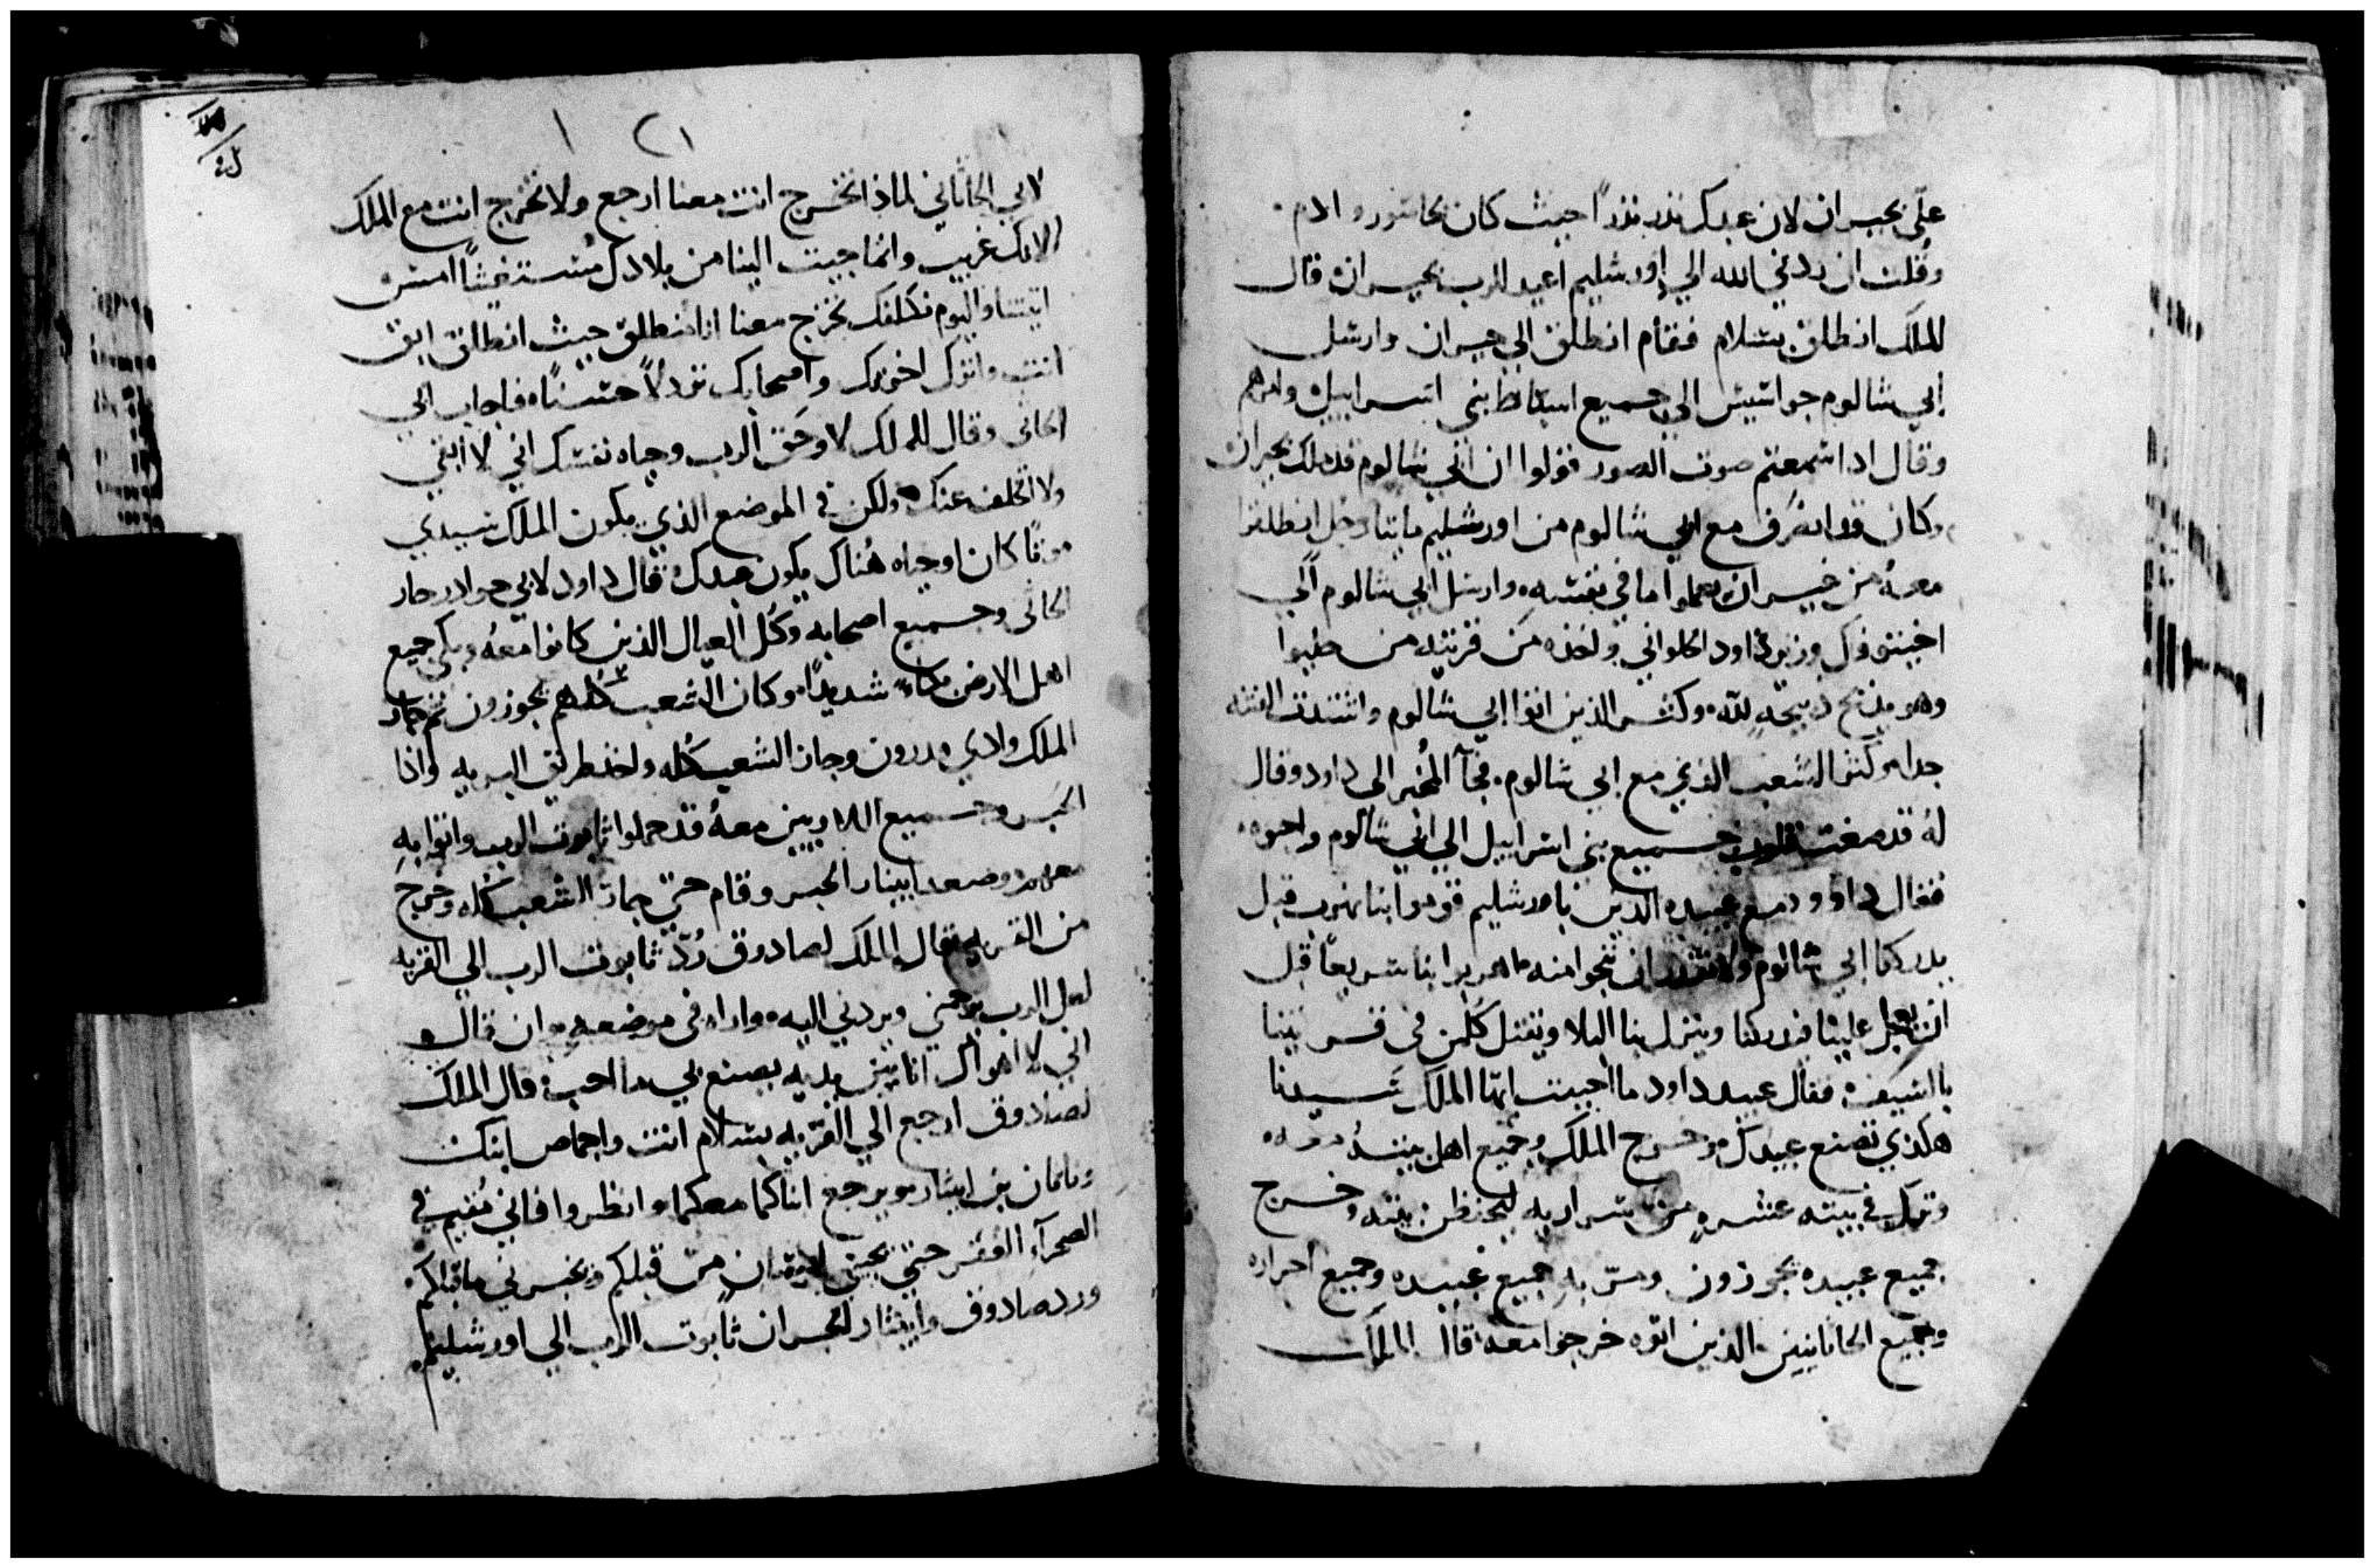 علي بحبران لان عبدك نذر نذراً حيث كان بحاشور وادم
وقلت ان ردني الله الي اورشليم اعيد للرب بحبران قال
الملك انطلق بسلام فقام انطلق الي حبران وارسل
ابي شالوم جواسيس الي جميع اسباط بني اسراييل وامرهم
وقال اذا سمعتم صوت الصور فقولوا ان ابي شالوم قد ملك بحبران
وكان قد انصرف مع ابي شالوم من اورشليم مايتا رجل انطلقوا
معه من غير ان يعلموا ما في نفسه وارسل ابي شالوم الي
اخيتوفل وزير داود الحلواني واخذه من قريته من حلبوا
وهو يذبح ذبيحه لله وكثر الذين اتوا ابي شالوم واشتدت الفتنه
جدا وكثر الشعب الذي مع ابي شالوم فجآ المخبر الي داود وقال
له قد صغت قلوب جميع بني اسراييل الي ابي شالوم واحبوه
فقال داوود لجميع عبيده الذين باورشليم قوموا بنا نهرب قبل
يدركنا ابي شالوم ولا نقدر ان ننجوا منه اهربوا بنا سريعاً قبل
ان يعجل علينا فيدركنا وينزل بنا البلا ويقتل كلمن في قريتنا
بالسيف فقال عبيد داود ما احببت ايها الملك سيدنا
هكذي تصنع عبيدك وخرج الملك وجميع اهل بيته معه
وترك في بيته عشره من سراريه ليحفظن بيته وخرج
جميع عبيده يجوزون ومر به جميع عبيده وجميع احراره
وجميع الحاثانيين الذين اتوه خرجوا معه قال الملك
لابي الحاثاني لماذا تخرج انت معنا ارجع ولا تخرج انت مع الملك
لانك غريب وانما جيت الينا من بلادك مستغيثاً امس
اتيتنا واليوم نكلفك تخرج معنا انا منطلق حيث انطلق ابق
انت واترك اخوتك واصحابك نزولاً حسناً فاجاب ابي
الحاثي وقال للملك لا وحق الرب وحياه نفسك اني لا ابقي
ولا اتخلف عنك ولكن في الموضع الذي يكون الملك سيدي
موتاً كان او حياه هناك يكون عبدك قال داود لابي جواد وجاز
الحاثي وجميع اصحابه وكل العيال الذين كانوا معه وبكي جميع
اهل الارض بكاء شديداً وكان الشعب كلهم يجوزون ثم جاز
الملك وادي مدرون وجاز الشعب كله واخذ طريق البريه واذا
الحبر وجميع اللاويين معه قد حملوا تابوت الرب واتوا به
معهم وصعد ابيثار الحبر وقام حتي جاز الشعب كله وخرج
من القريه فقال الملك لصادوق رد تابوت الرب الي القريه
لعل الرب يرحمني ويردني اليه واراه في موضعه وان قال
اني لا اهواك انا بين يديه يصنع بي ما احب قال الملك
لصادوق ارجع الي القريه بسلام انت واجماص ابنك
وناثان بن ابيثار ويرجع ابناكما معكما وانظروا فاني مقيم في
الصحرآ القفر حتي يجيني من قبلكم ويخبرني ما قبلكم
ورد صادوق وابيثار الحبران تابوت الرب الي اورشليم